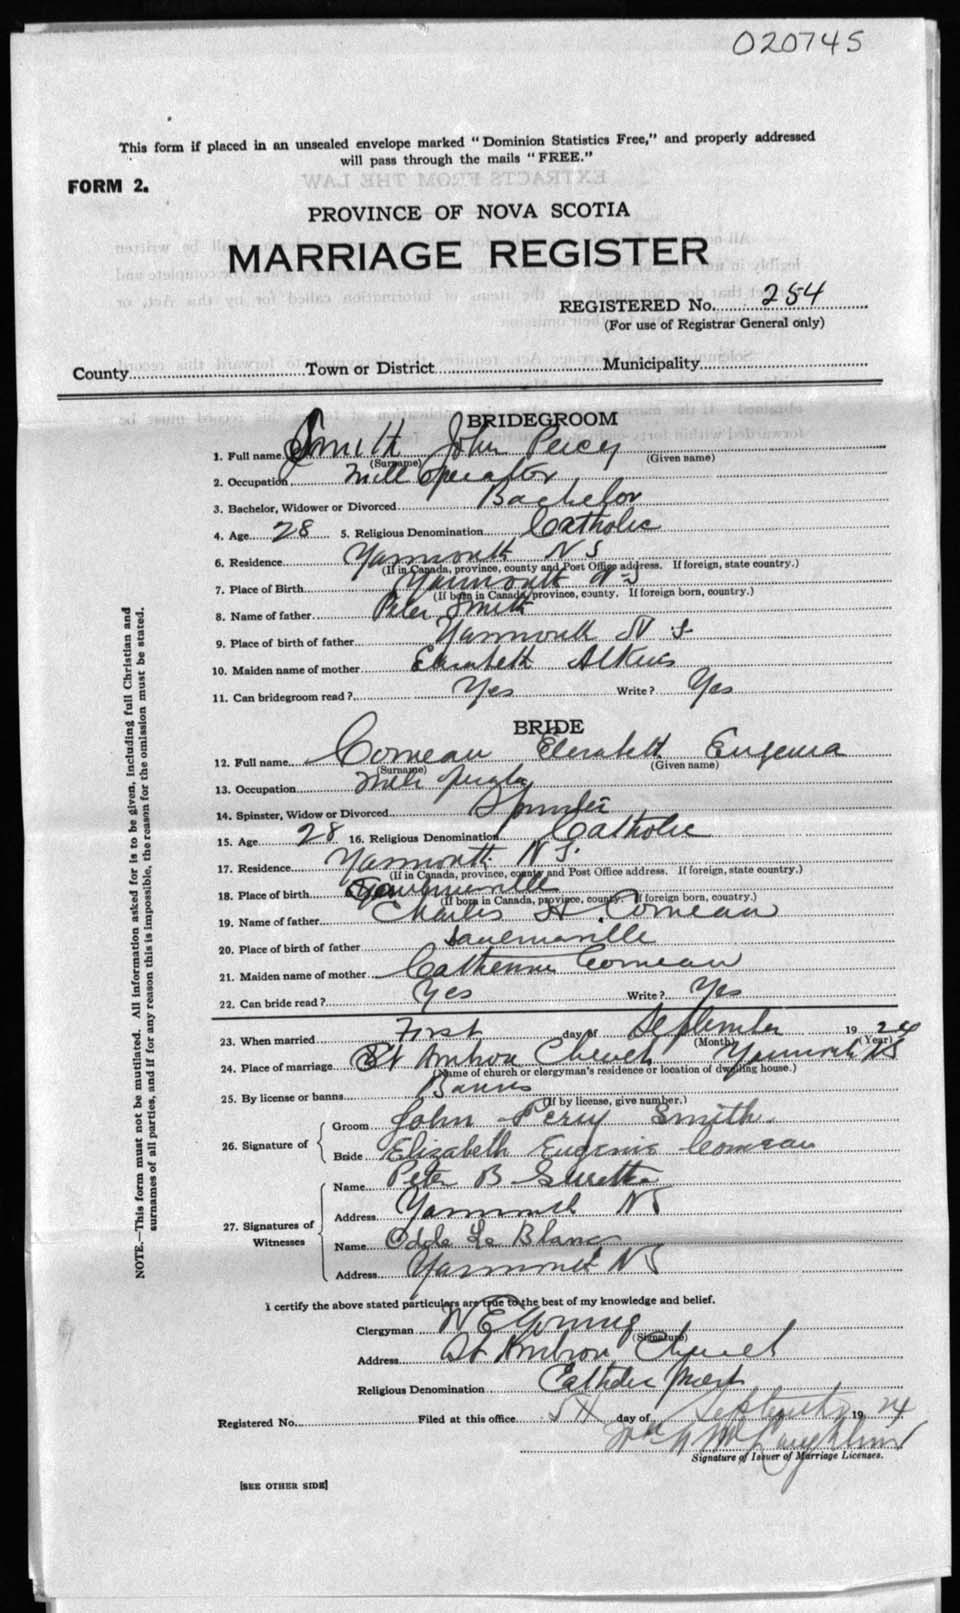 020745
This form if placed in an unsealed envelope marked "Dominion Statistics Free," and properly addressed
will pass through the mails "FREE."
FORM 2.
PROVINCE OF NOVA SCOTIA
MARRIAGE REGISTER
REGISTERED No. 254
(For use of Registrar General only)
County Town or District Municipality
BRIDEGROOM
1. Full name Smith John Percy
(Surname) (Given name)
2. Occupation Mill Operator
3. Bachelor, Widower or Divorced Bachelor
4. Age 28 5. Religious Denomination Catholic
6. Residence Yarmouth N S
(If in Canada, province, county and Post Office address. If foreign, state country.)
7. Place of Birth Yarmouth N S
(If born in Canada, province, county. If foreign born, country.)
8. Name of father Peter Smith
9. Place of birth of father Yarmouth N S
10. Maiden name of mother Elizabeth
11. Can bridegroom read? Yes Write? Yes
BRIDE
12. Full name Comeau Elizabeth Eugenia
(Surname) (Given name)
13. Occupation Mill
14. Spinster, Widow or Divorced Spinster
15. Age 28 16. Religious Denomination Catholic
17. Residence Yarmouth N S.
(If in Canada, province, county and Post Office address. If foreign, state country.)
18. Place of birth Saulnierville
(If born in Canada, province, county. If foreign born, country.)
19. Name of father Charles H. Comeau
20. Place of birth of father Saulnierville
21. Maiden name of mother Catherine Comeau
22. Can bride read? Yes Write? Yes
23. When married First day of September 1924
(Month) (Year)
24. Place of marriage St Ambrose Church Yarmouth NS
(Name of church or clergyman's residence or location of dwelling house.)
25. By license or banns Banns
(If by license, give number.)
26. Signature of
Groom John Percy Smith
Bride Elizabeth Eugenie Comeau
27. Signatures of Witnesses
Name Peter B
Address Yarmouth NS
Name Odde Le Blanc
Address Yarmouth NS
I certify the above stated particulars are true to the best of my knowledge and belief.
Clergyman W E Young
(Signature)
Address St Ambrose Church
Religious Denomination Catholic Priest
Registered No. Filed at this office 5th day of September 1924
McLaughlin
Signature of Issuer of Marriage Licenses.
[SEE OTHER SIDE]
NOTE.—This form must not be mutilated. All information asked for is to be given, including full Christian and
surnames of all parties, and if for any reason this is impossible, the reason for the omission must be stated.